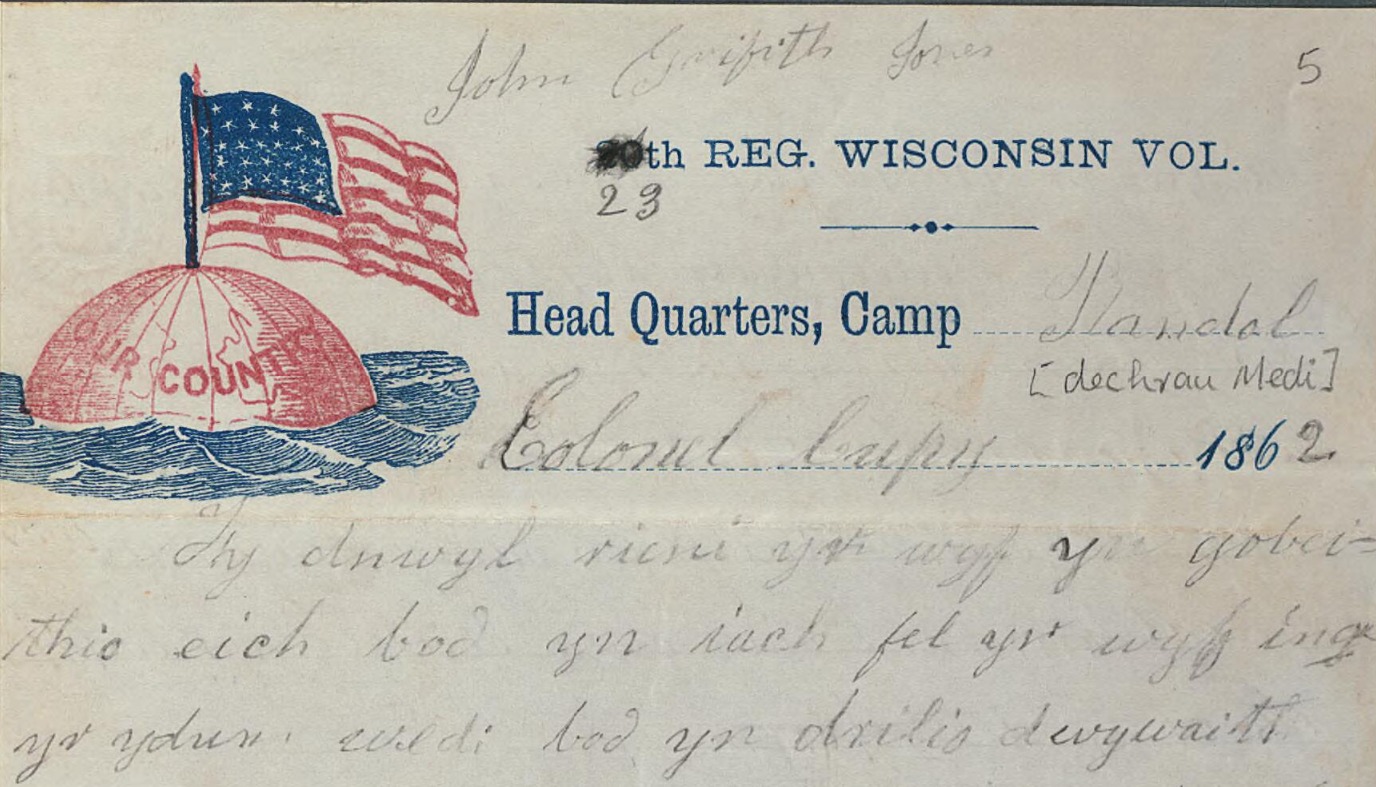 John Griffith Jones
5
20th REG. WISCONSIN VOL.
23
Head Quarters, Camp Randal
[dechrau Medi]
Colonel 1862
OUR COUNTRY
Fy anwyl rieni yr wyf yn gobei=
thio eich bod yn iach fel yr wyf inau
yr ydwn wedi bod yn drilio dwywaith